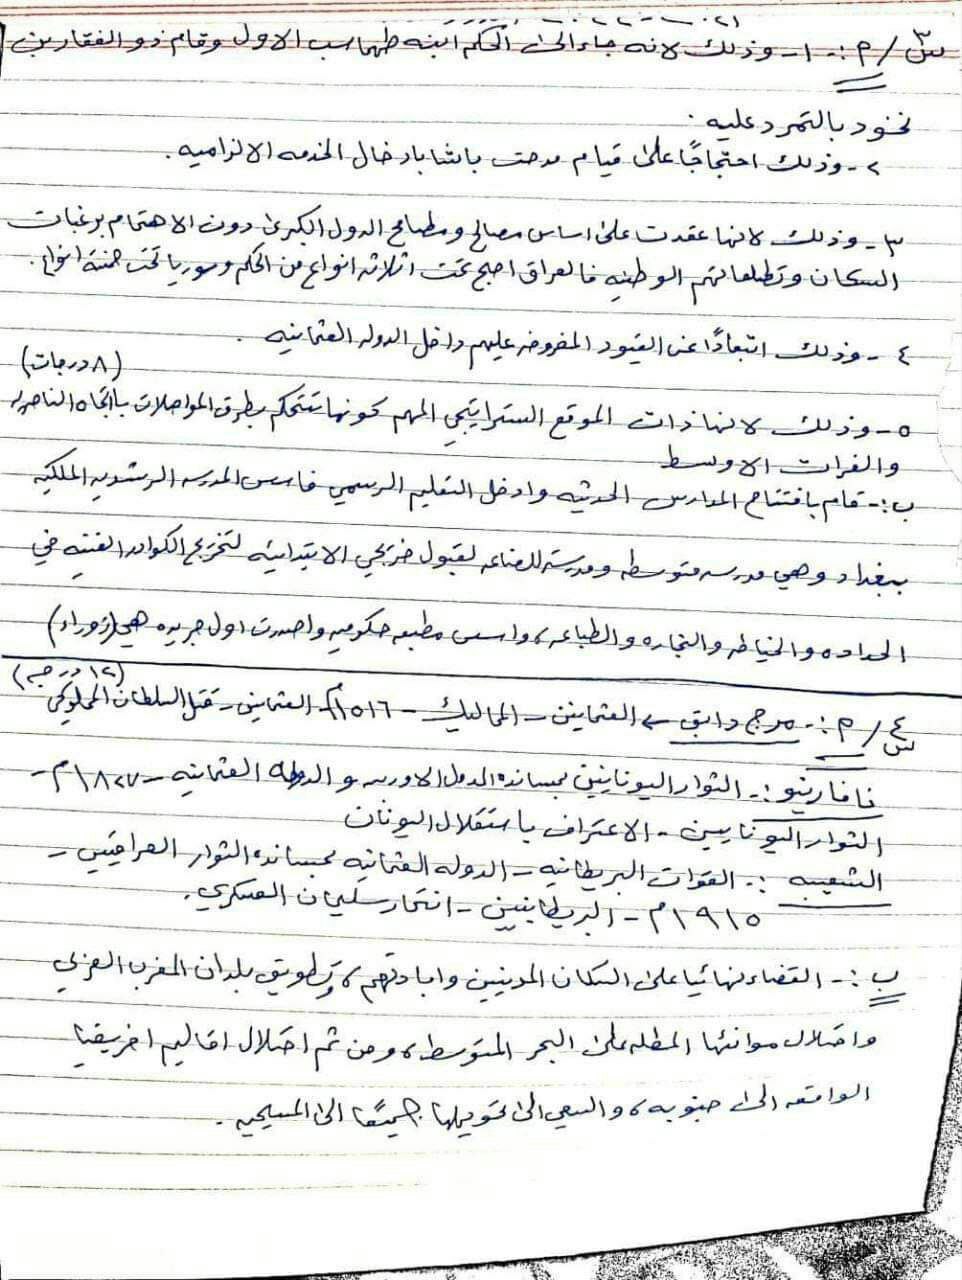 س٣/ م :- ١- وذلك لانه جاء الى الحكم ابنه طهماسب الاول وقام ذو الفقار بن
نخود بالتمرد عليه .
٢- وذلك احتجاجًا على قيام مدحت باشا بادخال الخدمه الالزاميه .
٣- وذلك لانها عقدت على اساس مصالح ومطامح الدول الكبرى دون الاهتمام برغبات
السكان وتطلعاتهم الوطنيه فالعراق اصبح تحت ثلاثه انواع من الحكم وسوريا تحت خمسة انواع .
٤- وذلك ابتعادًا عن القيود المفروضه عليهم داخل الدوله العثمانيه .
(٨ درجات)
٥- وذلك لانها ذات الموقع الستراتيجي المهم كونها تتحكم بطرق المواصلات باتجاه الناصريه
والفرات الاوسط
ب :- قام بافتتاح المدارس الحديثه وادخل التعليم الرسمي فاسس المدرسه الرشديه الملكيه
ببغداد وهي مدرسه متوسطه ومدرسة للصناعه لقبول خريجي الابتدائيه لتخريج الكوادر الفنيه في
الحداده والخياطه والنجاره والطباعه، واسس مطبعه حكوميه واصدرت اول جريده هي (زوراء)
(١٢ درجه)
س٤/ م :- مرج دابق ← العثمانين - المماليك - ١٥١٦م - العثمانين - قتل السلطان المملوكي
نافارينو :- الثوار اليونانيين بمسانده الدول الاوربيه و الدوله العثمانيه - ١٨٢٧م -
الثوار اليونانيين - الاعتراف باستقلال اليونان
الشعيبه :- القوات البريطانيه - الدوله العثمانيه بمسانده الثوار العراقيين -
١٩١٥م - البريطانيين - انتحار سليمان العسكري .
ب :- القضاء نهائيا على السكان المدنيين وابادتهم، وتطويق بلدان المغرب العربي
واحتلال موانئها المطله على البحر المتوسط، ومن ثم احتلال اقاليم افريقيا
الواقعه الى جنوبه، والسعي الى تحويلها جميعًا الى المسيحيه .